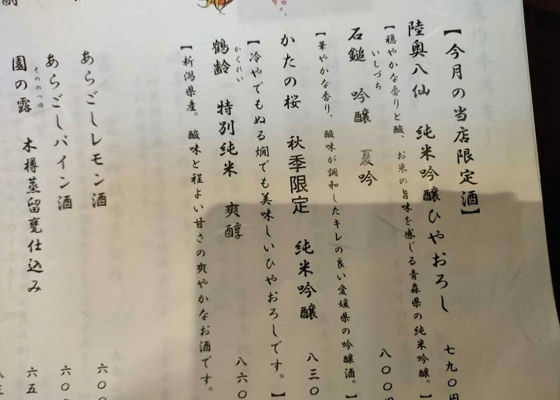 【今月の当店限定酒】
陸奥八仙 純米吟醸ひやおろし 七九〇円
【穏やかな香りと酸 お米の旨味を感じる青森県の純米吟醸。】
いしづち
石鎚 吟醸 夏吟 八〇〇円
【華やかな香り、酸味が調和したキレの良い愛媛県の吟醸酒。】
かたの桜 秋季限定 純米吟醸 八三〇
【冷やでもぬる燗でも美味しいひやおろしです。】
かくれい
鶴齢 特別純米 爽醇 八六〇
【新潟県産。酸味と程よい甘さの爽やかなお酒です。
あらごしレモン酒 六〇
あらごしパイン酒 六〇
そののつゆ
園の露 木樽蒸留甕仕込み 六五